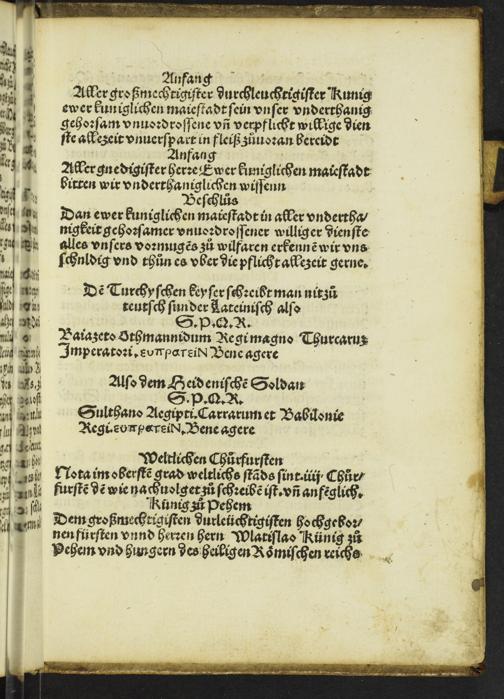 Anfang
Aller großmechtigister durchleuchtigister Kunig
ewer kuniglichen maiestadt sein vnser vnderthanig
gehorsam vnuordrossene vn̄ verpflicht willige dien
ste allezeit vnuerspart in fleiß zůuoran bereidt
Anfang
Aller gnedigister herre Ewer kuniglichen maiestadt
bitten wir vnderthaniglichen wissenn
Beschlůs
Dan ewer kuniglichen maiestadt in aller vndertha/
nigkeit gehorsamer vnuordrossener williger dienste
alles vnsers vormugēs zů wilfaren erkennē wir vns
schuldig vnd thůn es vber die pflicht allezeit gerne.
Dē Turchyschen keyser schreibt man nit zů
teutsch sunder Lateinisch also
S.P.Q.R.
Baiazeto Othmannidum Regi magno Thurcaruꝫ
Imperatori. ευπρατειΝ Bene agere
Also dem Heidenischē Soldan
S.P.Q.R.
Sulthano Aegipti. Carrarum et Babilonie
Regi. ευπρατειΝ. Bene agere
Weltlichen Chůrfursten
Nota im oberstē grad weltlichs stāds sint .iiij. Chůr/
furstē dē wie nachuolget zů schreibē ist. vn̄ anfēglich.
Kůnig zů Pehem
Dem großmechtigisten durleůchtigisten hochgebor/
nen fürsten vnnd herren hern Wlatislao Kůnig zů
Pehem vnd hungern des heiligen Rőmischen reichs